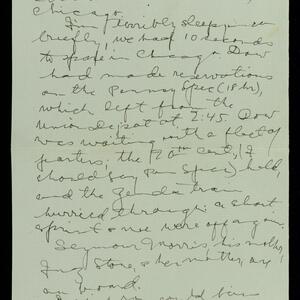 Chicago.
I'm terribly sleepy
briefly, we had 10 seconds
to spare in Chicago. Dow
had made reservations
on the Pennsy Spec (18 hr),
which left from the
Union Depot at 2:45. Dow
was waiting with a fleet of
porters; the 20th cent, (I
should say Penn Spec) held,
and the
train
hurried through: a short
sprint & we were off again.
Seymour Morris, his mother,
Store, & her mother, are
on board.